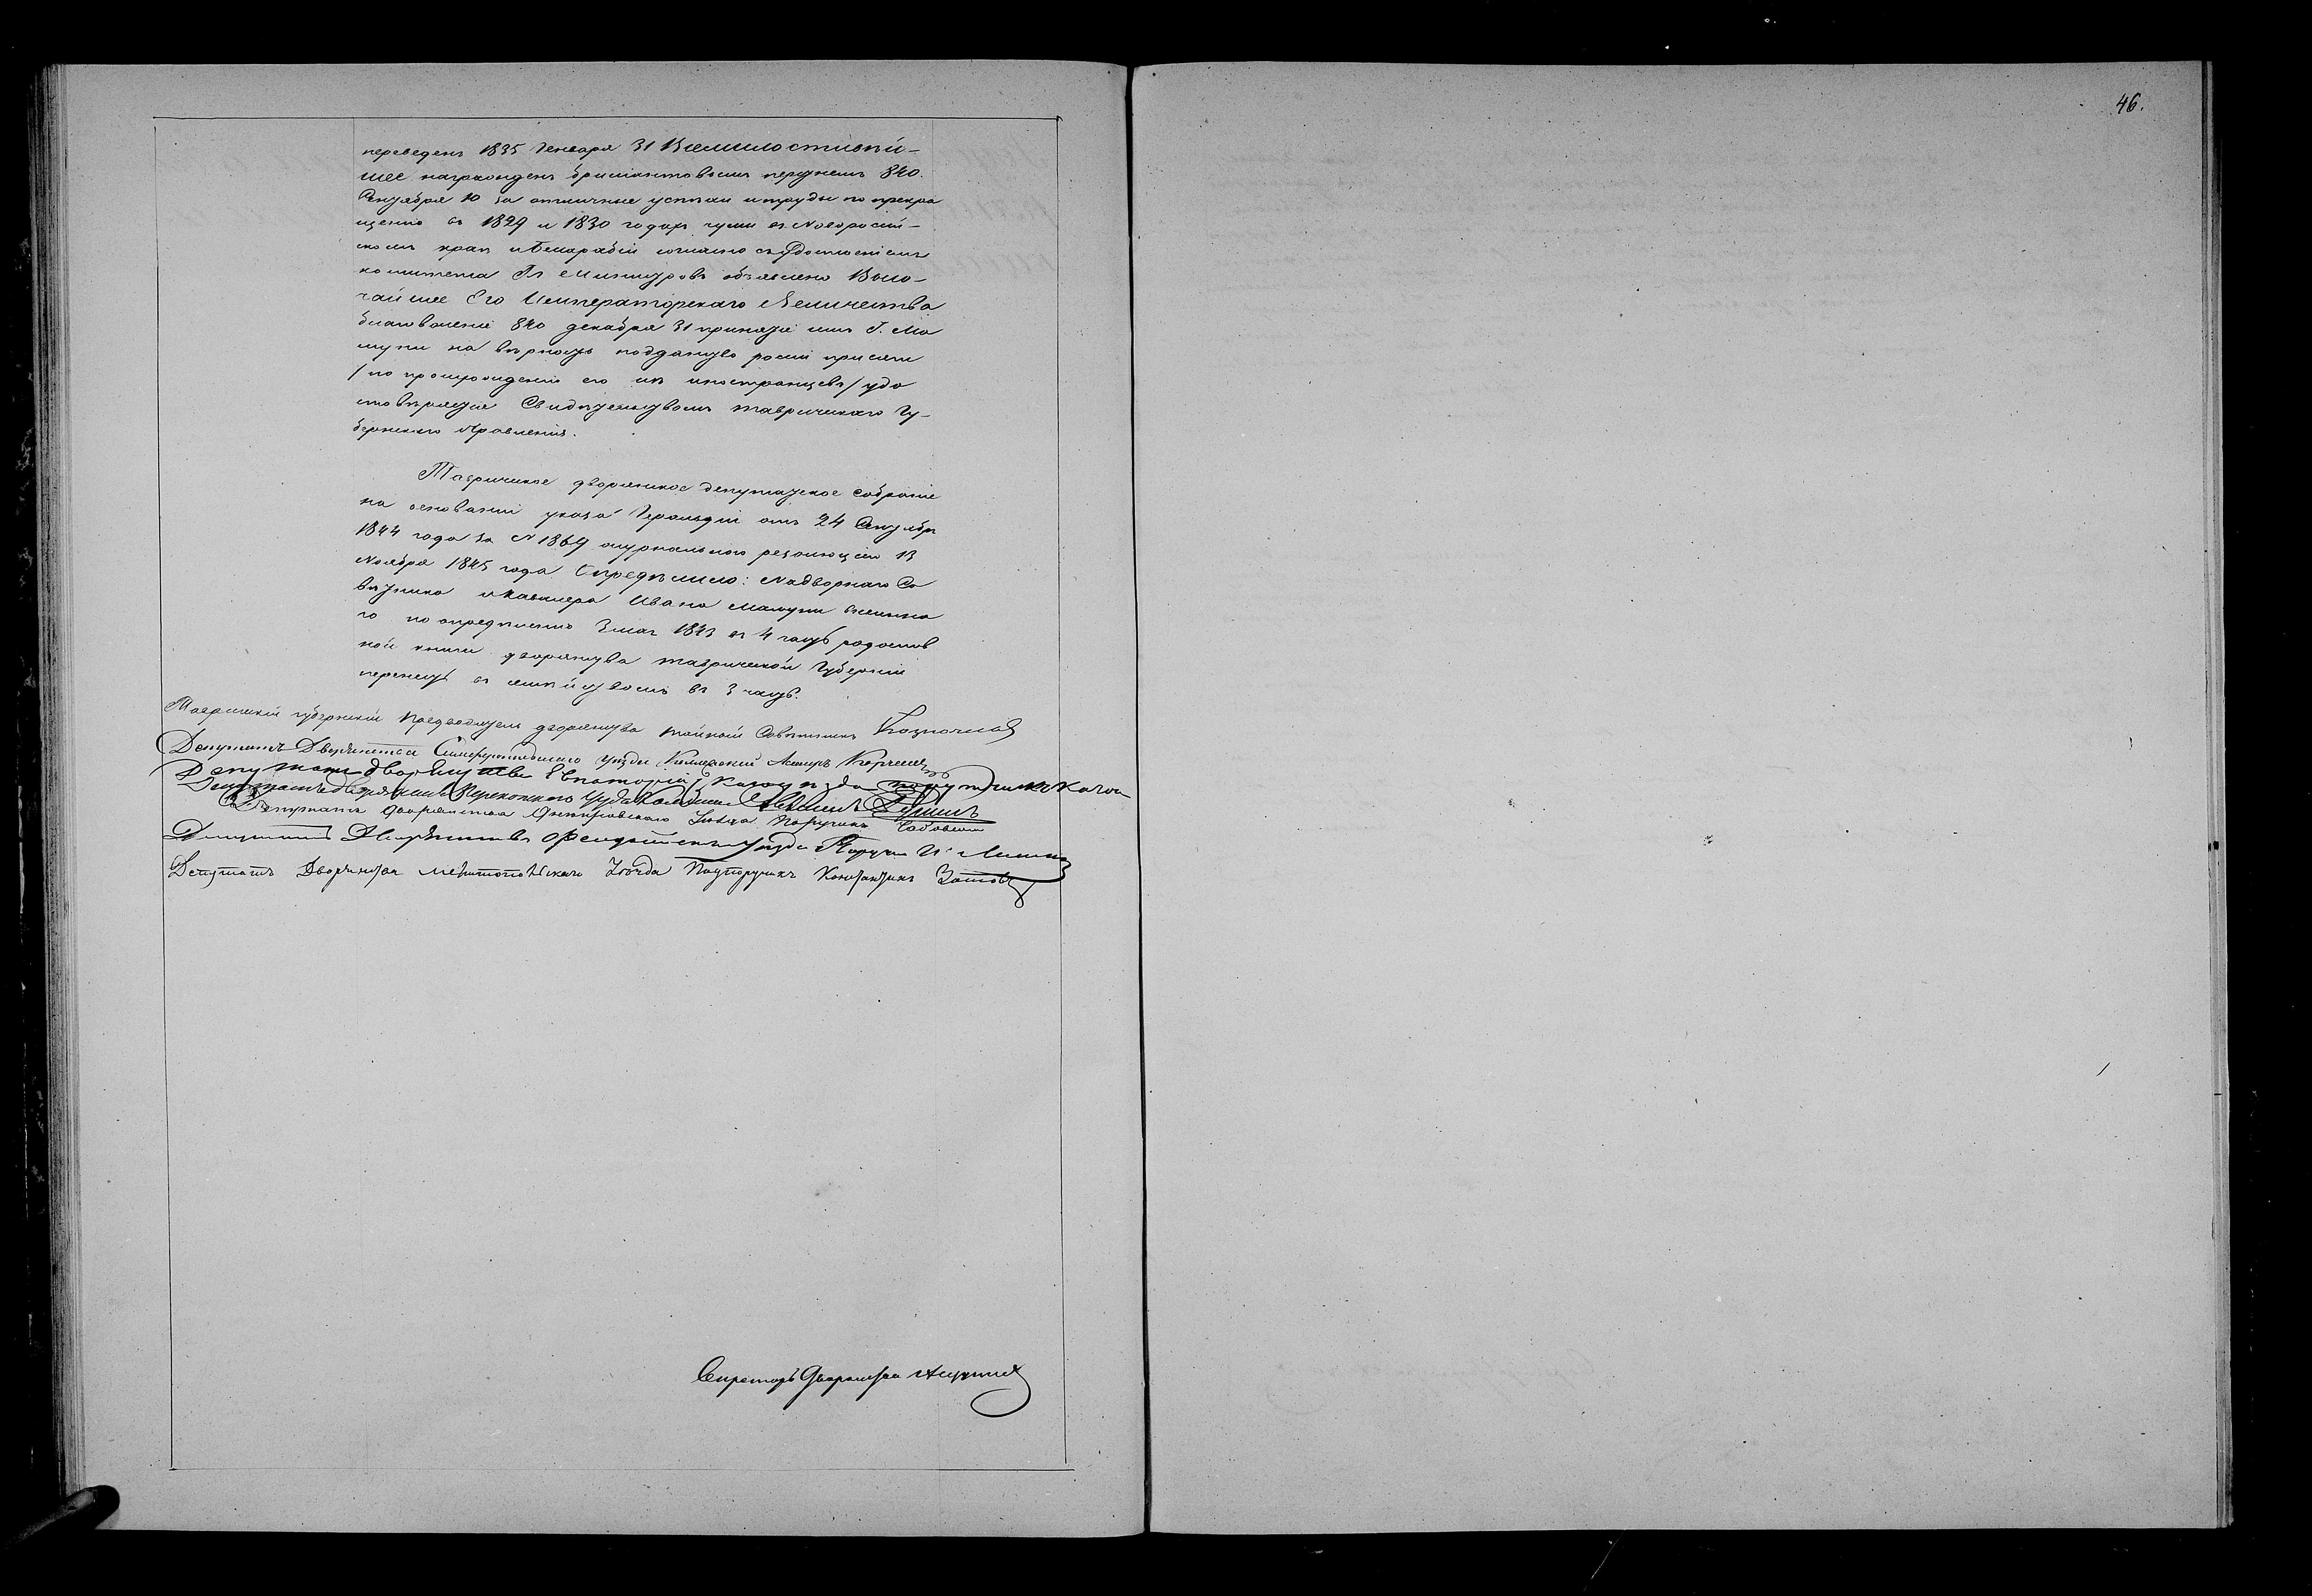 46.
переведенъ 1835 Генваря 31 Всемилостивѣй-
шее награжденъ брилiантовымъ перстнемъ 840.
Сентября 10 за отличные успѣхи и труды по прекра
щенiю въ 1829 и 1830 годахъ чумы въ Новоросiй-
скомъ краѣ и Бесарабiи согласно съ удостоенiемъ
комитета Гг Министровъ объявлено Высо-
чайшее Его Императорскаго Величества
благоволенiе 840 декабря 31 принятiе имъ Г. Ма
на вѣрность подданства росiи присяги
/по происхожденiю его изъ иностранцевъ/ удо
стовѣряется Свидѣтельствомъ таврическаго Гу-
бернскаго Правленiя.
Таврическое дворянское депутатское собранiе
на основанiи указа Герольдiи отъ 24 Сентября
1844 года за N 1869 журнальною резолюцiею 13
Ноября 1845 года Опредѣлило: Надворнаго Со
вѣтника и Кавалера Ивана внесенна
го по опредѣленiю 3 мая 1843 въ 4 часть родослов
ной книги дворянства таврической Губернiи
перенесть съ семѣйствомъ въ 3 часть.
Таврическiй губернскiй Предводитель дворянства тайный Совѣтникъ Казначеевъ
Депутатъ Дворянства Симферопольскаго уѣзда
Депутатъ дворянства Евпаторiйскаго уѣзда
Депутатъ дворянства Перекопскаго уѣзда
Депутатъ дворянства Днѣпровскаго Уѣзда Поручикъ
Депутатъ Дворянства Феодосiйскаго уѣзда
Депутатъ Дворянства Мелитопольскаго Уѣзда Подпоручикъ Константинъ
Секретарь Дворянства